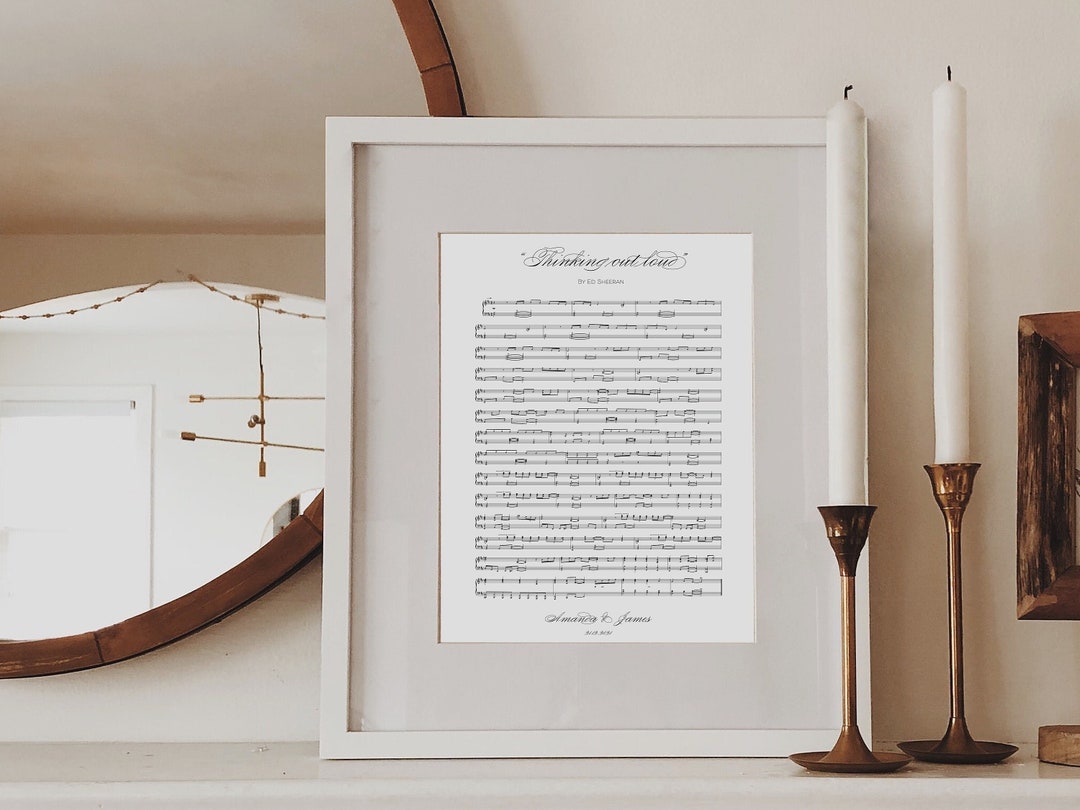 "Thinking out loud"
By Ed Sheeran
Amanda & James